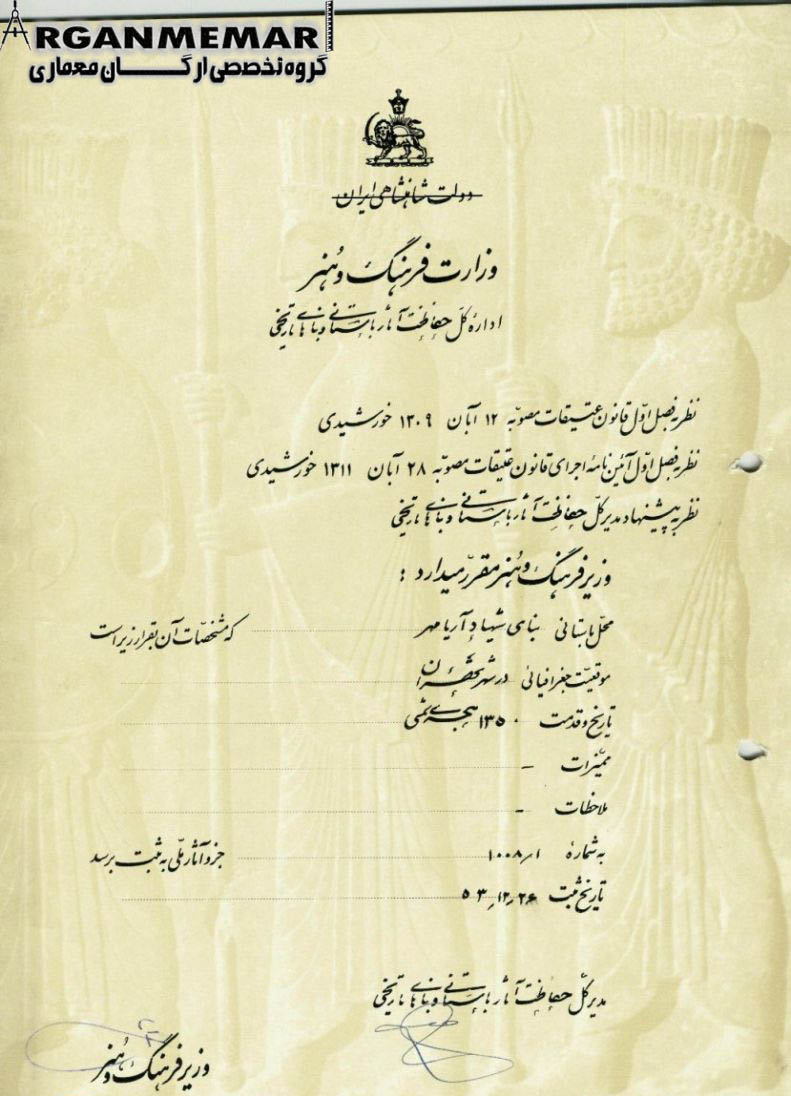 ARGANMEMAR
گروه تخصصی ارگــــــان معماری
دولت شاهنشاهی ایران
وزارت فرهنگ و هنر
اداره کلّ حفاظت آثار باستانی و بناهای تاریخی
نظر به فصل اوّل قانون عتیقات مصوّبه ۱۲ آبان ۱۳۰۹ خورشیدی
نظر به فصل اوّل آئین نامهٔ اجرای قانون عتیقات مصوّبه ۲۸ آبان ۱۳۱۱ خورشیدی
نظر به پیشنهاد مدیر کلّ حفاظت آثار باستانی و بناهای تاریخی
وزیر فرهنگ و هنر مقرّر میدارد :
محلّ باستانی بنای شهیاد آریامهر که مشخصّات آن بقرار زیر است
موقعیّت جغرافیائی در شهر تهران
تاریخ و قدمت ۱۳۵۰ هجری شمسی
ممیّزات -
ملاحظات -
به شمارهٔ ۱۰۰۸٫۱ جزو آثار ملّی به ثبت برسد
تاریخ ثبت ۵۳٫۱۲٫۲۶
مدیر کلّ حفاظت آثار باستانی و بناهای تاریخی
وزیر فرهنگ و هنر